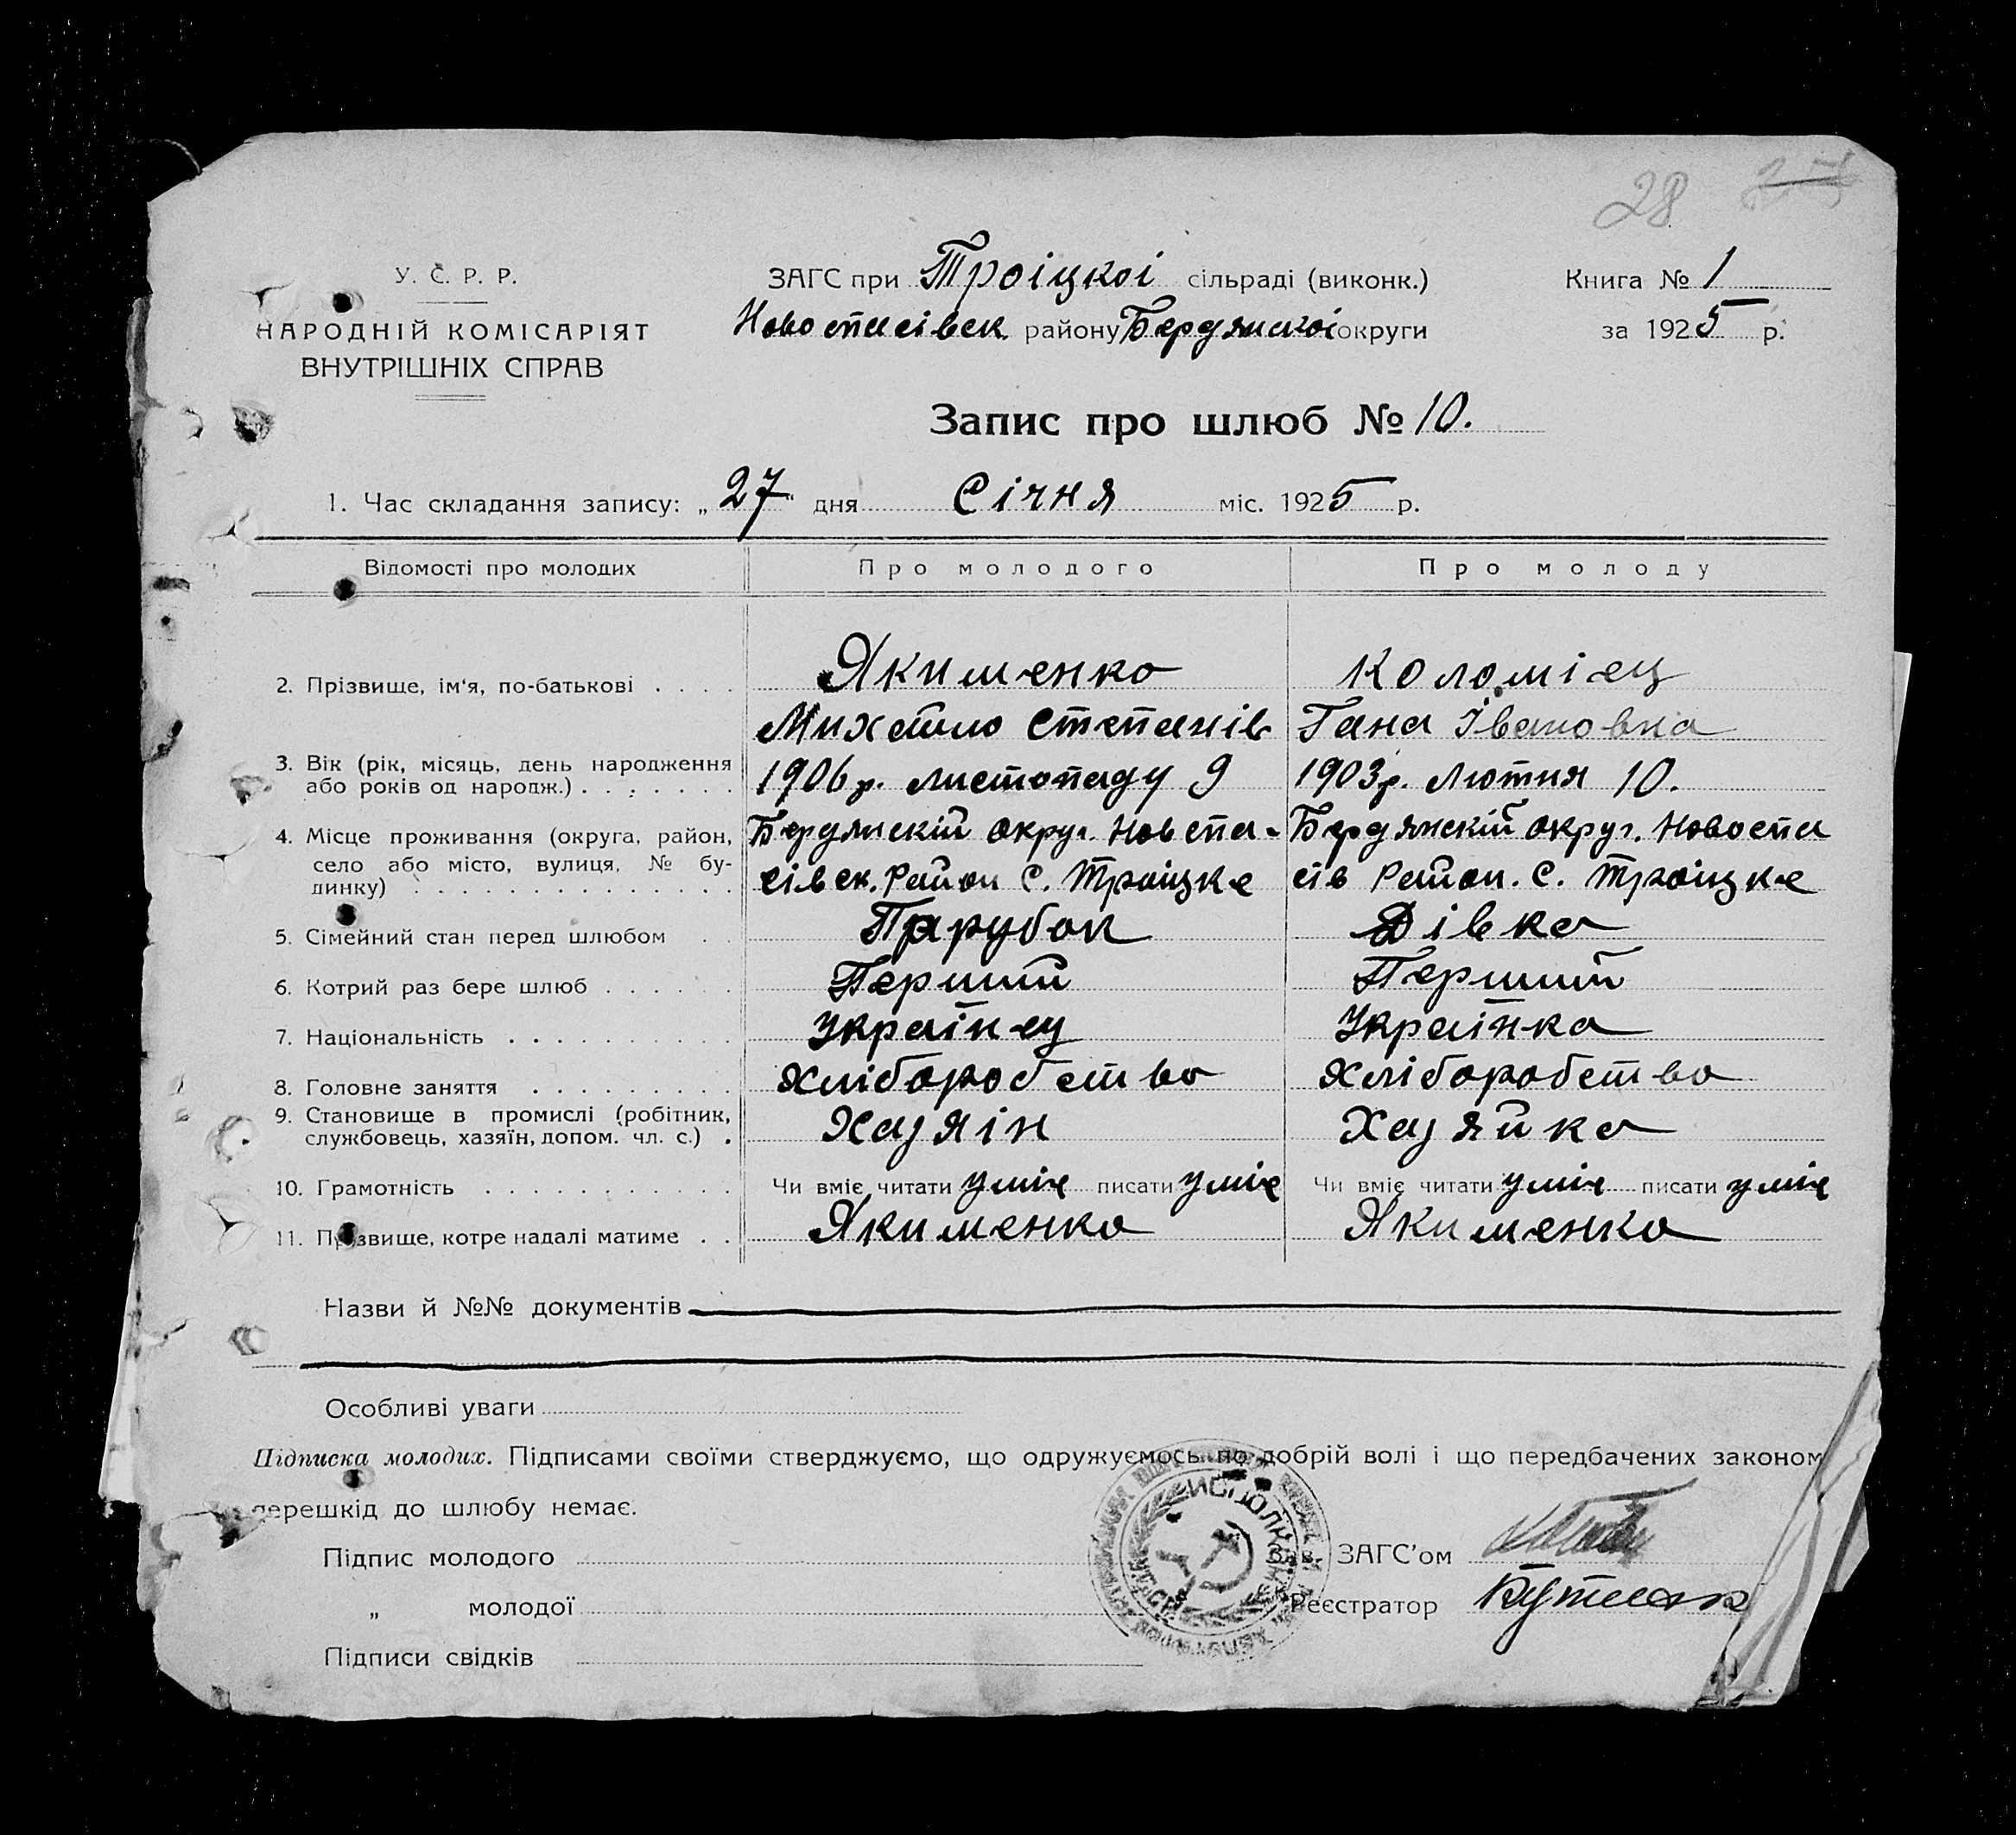 28
У. С. Р. Р.
НАРОДНІЙ КОМІСАРІЯТ
ВНУТРІШНІХ СПРАВ
ЗАГС при Троіцкоі сільраді (виконк.)
Новоспасівск району Бердянскоі округи
Книга № 1
за 1925 р.
Запис про шлюб № 10.
1. Час складання запису: „27" дня Січня міс. 1925 р.
Відомості про молодих Про молодого Про молоду
2. Прізвище, ім'я, по-батькові . . . . Якименко Коломіец
Михайло Степанів Гана Івановна
3. Вік (рік, місяць, день народження 1906 р. Листопаду 9 1903 р. Лютня 10.
або років од народж.) . . . . . . .
4. Місце проживання (округа, район, Бердянскій округ. Новспа- Бердянскій округ. Новоспа
село або місто, вулиця, № бу- сівск. Район С. Троіцке сів Район. С. Троіцке
динку) . . . . . . . . . . . . . . .
5. Сімейний стан перед шлюбом . . Парубок Дівка
6. Котрий раз бере шлюб . . . . . . Перший Перший
7. Національність . . . . . . . . . . Украінец Украінка
8. Головне заняття . . . . . . . . . Хліборобство Хліборобство
9. Становище в промислі (робітник, Хазяін Хазяйка
службовець, хазяїн, допом. чл. с.) .
10. Грамотність . . . . . . . . . . . Чи вміє читати уміє писати уміє Чи вміє читати уміє писати уміє
11. Прізвище, котре надалі матиме . . Якименко Якименко
Назви й №№ документів
Особливі уваги
Підписка молодих. Підписами своїми стверджуємо, що одружуємось по добрій волі і що передбачених законом
перешкід до шлюбу немає.
Підпис молодого
„ молодої
Підписи свідків
Зав. ЗАГС'ом
Реєстратор